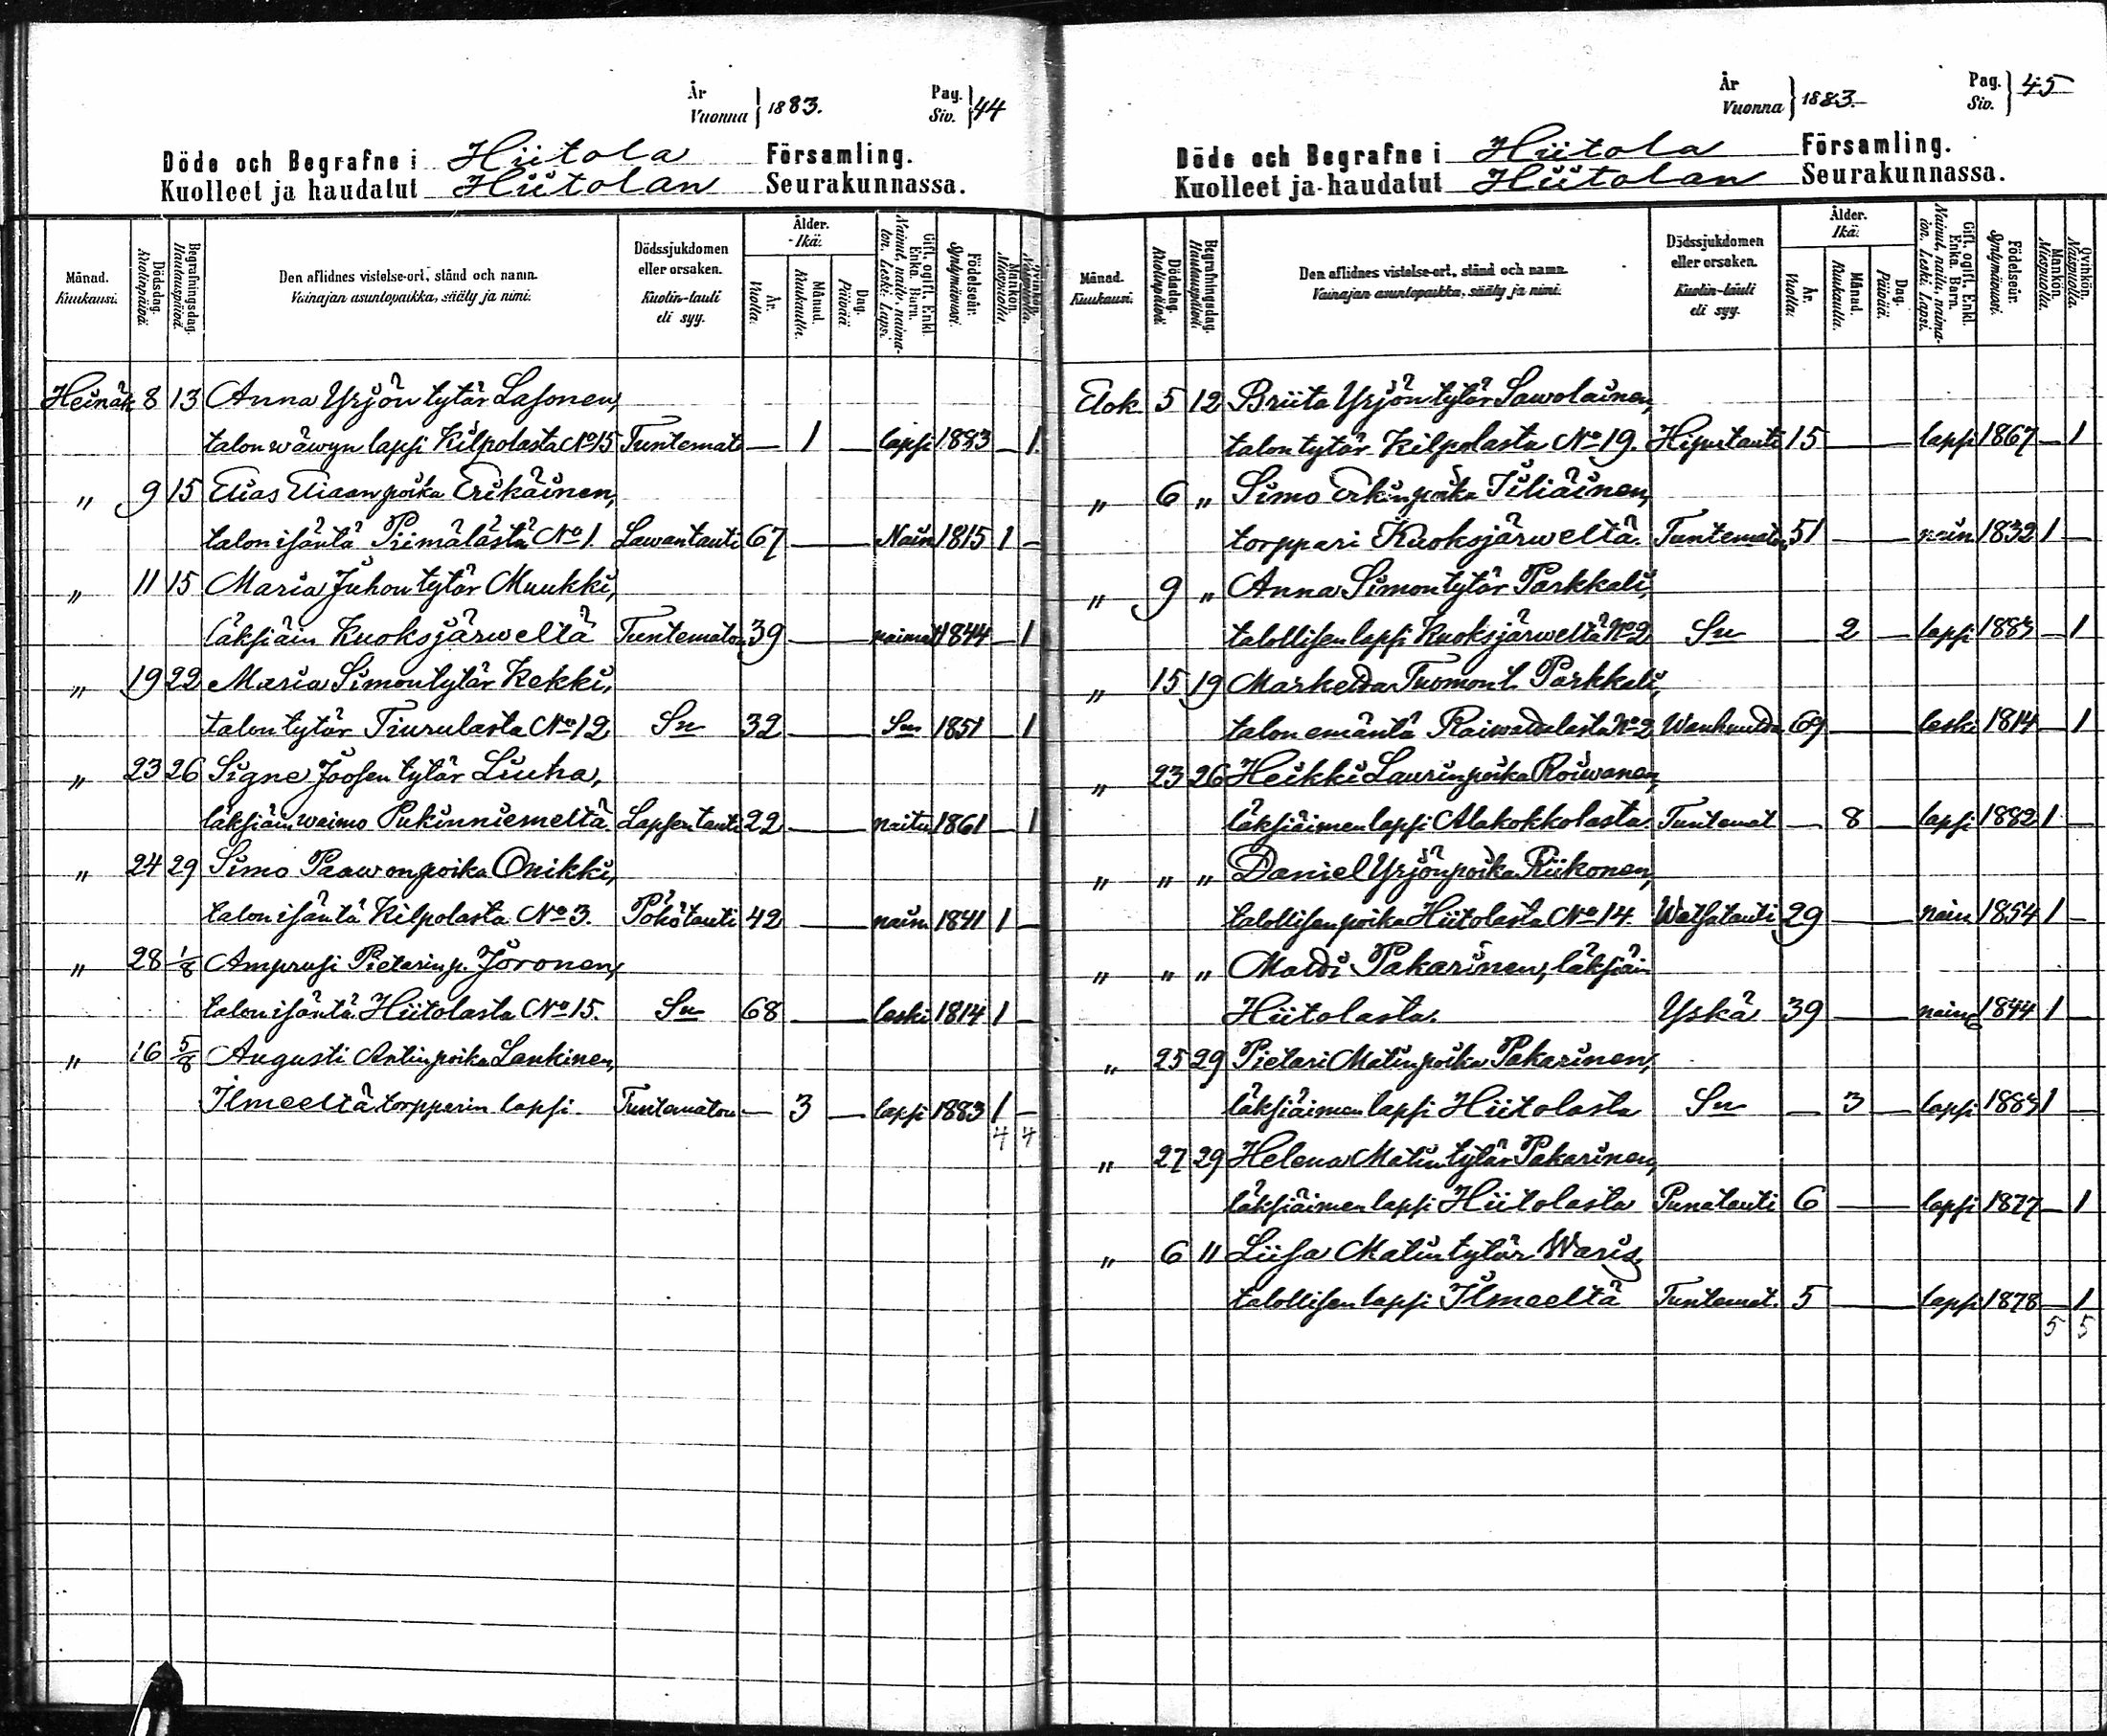 År
Vuonna } 1883.
Pag.
Siv. } 44
Döde och Begrafne i Hiitola Församling.
Kuolleet ja haudatut Hiitolan Seurakunnassa.
Månad. Kuukausi.
Dödsdag. Kuolinpäivä.
Begrafningsdag. Hautauspäivä.
Den aflidnes vistelse-ort, stånd och namn.
Vainajan asuntopaikka, sääty ja nimi.
Dödssjukdomen eller orsaken.
Kuolin-tauti eli syy.
Ålder. Ikä:
År. Vuotta.
Månad. Kuukautta.
Dag. Päivää.
Gift, ogift, Enkl. Enka. Barn.
Nainut, naitu, naimaton. Leski. Lapsi.
Födelseår. Syntymävuosi.
Mankön. Miespuolia.
Qvinkön. Naispuolia.
Heinäk 8 13 Anna Yrjön tytär Lasonen,
talon wäwyn lapsi Kilpolasta No 15 Tuntemat — 1 — lapsi 1883 — 1.
" 9 15 Elias Eliaan poika Erikäinen,
talon isäntä Piimälästä No 1. Lawantauti 67 — Nain 1815 1 —
" 11 15 Maria Juhon tytär Muukki,
läksiäin Kuoksjärweltä Tuntematon 39 — naimat 1844 — 1
" 19 22 Maria Simon tytär Kekki,
talon tytär Tiurulasta No 12 Sn 32 — Sn 1851 — 1
" 23 26 Signe Joosen tytär Liuha,
läksiäin waimo Pukinniemeltä. Lapsentauti 22 — naitu 1861 — 1
" 24 29 Simo Paawon poika Onikki,
talon isäntä Kilpolasta No 3. Pöhötauti 42 — nain 1841 1 —
" 28 1/8 Amprusi Pietarin p. Joronen,
talon isäntä Hiitolasta No 15. Sn 68 — leski 1814 1 —
" 16 5/8 Augusti Antin poika Lankinen,
Ilmeeltä torpparin lapsi. Tuntematon — 3 — lapsi 1883 1 —
4 4
År
Vuonna } 1883.
Pag.
Siv. } 45
Döde och Begrafne i Hiitola Församling.
Kuolleet ja haudatut Hiitolan Seurakunnassa.
Månad. Kuukausi.
Dödsdag. Kuolinpäivä.
Begrafningsdag. Hautauspäivä.
Den aflidnes vistelse-ort, stånd och namn.
Vainajan asuntopaikka, sääty ja nimi.
Dödssjukdomen eller orsaken.
Kuolin-tauti eli syy.
Ålder. Ikä:
År. Vuotta.
Månad. Kuukautta.
Dag. Päivää.
Gift, ogift, Enkl. Enka. Barn.
Nainut, naitu, naimaton. Leski. Lapsi.
Födelseår. Syntymävuosi.
Mankön. Miespuolia.
Qvinkön. Naispuolia.
Elok. 5 12 Briita Yrjön tytär Sawolainen,
talon tytär Kilpolasta No 19. 15 — lapsi 1867 — 1
" 6 " Simo Erkin poika Tiliäinen,
torppari Kuoksjärweltä. Tuntematon 51 — nain 1832 1 —
" 9 " Anna Simon tytär Parkkali,
talollisen lapsi Kuoksjärweltä No 2 Sn — 2 — lapsi 1883 — 1
" 15 19 Marketta Tuomon t. Parkkali,
talon emäntä Raiwattalasta No 2 Wanhuutta 69 — leski 1814 — 1
" 23 26 Heikki Laurin poika Roiwanen,
läksiäimen lapsi Alakokkolasta. Tuntemat — 8 — lapsi 1882 1 —
" " " Daniel Yrjön poika Riikonen,
talollisen poika Hiitolasta No 14. Watsatauti 29 — nain 1854 1 —
" " " Matti Pakarinen, läksiäin
Hiitolasta. Yskä 39 — nain 1844 1 —
" 25 29 Pietari Matin poika Pakarinen,
läksiäimen lapsi Hiitolasta Sn — 3 — lapsi 1883 1 —
" 27 29 Helena Matin tytär Pakarinen,
läksiäimen lapsi Hiitolasta Punatauti 6 — lapsi 1877 — 1
" 6 11 Liisa Matin tytär Waris,
talollisen lapsi Ilmeeltä Tuntemat. 5 — lapsi 1878 — 1
5 5